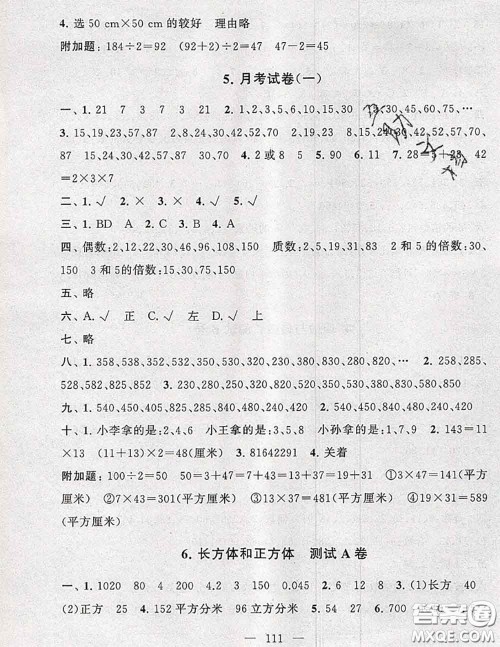 4. 选 50 cm×50 cm 的较好 理由略
附加题：184÷2=92 (92+2)÷2=47 47-2=45
5. 月考试卷(一)
一、1. 21 7 3 7 3 21 2. 1、2、3、5、6、10、15、30 15、30、45、60、75、…
3. 15、19、23、57、87 2、19、23 8、15、24、30、42、52、57、70、
87 15、24、30、42、57、87 30 4. 2 或 8 5. 90 6. 11 7. 28=5+23 42
=2×3×7
二、1. √ 2. × 3. × 4. √ 5. √
三、1. BD A 2. C 3. B 4. A
四、偶数：2、12、22、30、46、96、108、150 质数：2、5、19、31、83 2 和 5 的倍数：30、
150 3 和 5的倍数：15、30、75、150
五、略
六、A. √ 正 B. √ 左 C. √ 左 D. √ 上
七、略
八、1. 358、538、352、532、350、530、380、830、320、230、820、280、… 2. 258、285、
528、582、825、852 3. 230、320、350、380、530、580、820、830、850
九、1. 540、450、405、825、285、840、480、820、280 2. 540、450、840、480、820、280
十、1. 小李拿的是：2、4、6 小王拿的是：3、5、8 小孙拿的是：1、7、9 2. 143=11
×13 (11+13)×2=48(厘米) 3. 81642291 4. 关着
附加题：100÷2=50 50=3+47=7+43=13+37=19+31 ①3×47=141(平方
厘米) ②7×43=301(平方厘米) ③13×37=481(平方厘米) ④19×31=589
(平方厘米)
6. 长方体和正方体 测试 A 卷
一、1. 1020 80 4 200 4.2 3 150 0.045 2. 6 12 8 3. (1)长方 40
(2)正方 25 4. 152 平方分米 96 立方分米 5. 54 27 6. 700
— 111 —
答案圈
MXQE.COM